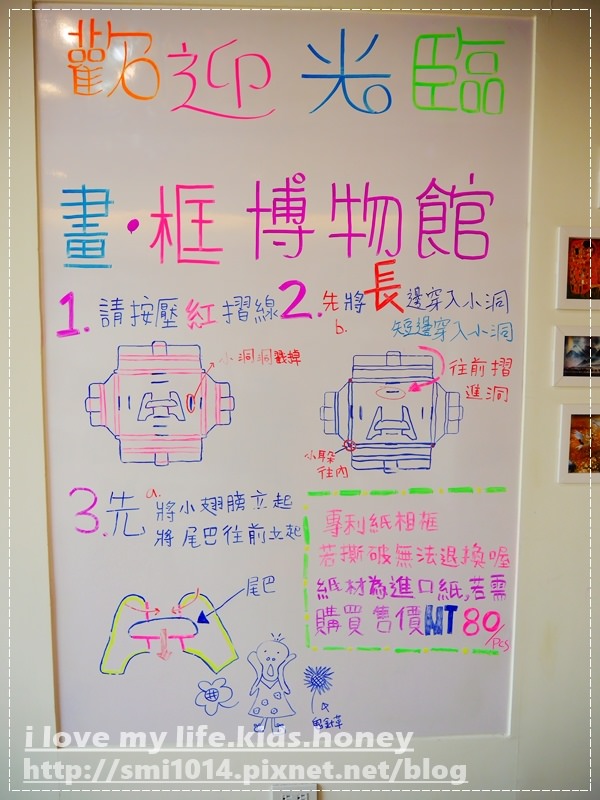 歡迎光臨
畫・框博物館
1.請按壓紅摺線
小洞洞戳掉
2.先將長邊穿入小洞
b. 短邊穿入小洞
往前摺
進洞
小躲
往內
3.先a.將小翅膀立起
將尾巴往前立起
尾巴
專利紙相框
若撕破無法退換喔
紙材為進口紙,若需
購買 售價NT 80/pcs
i love my life.kids.honey
http://smi1014.pixnet.net/blog